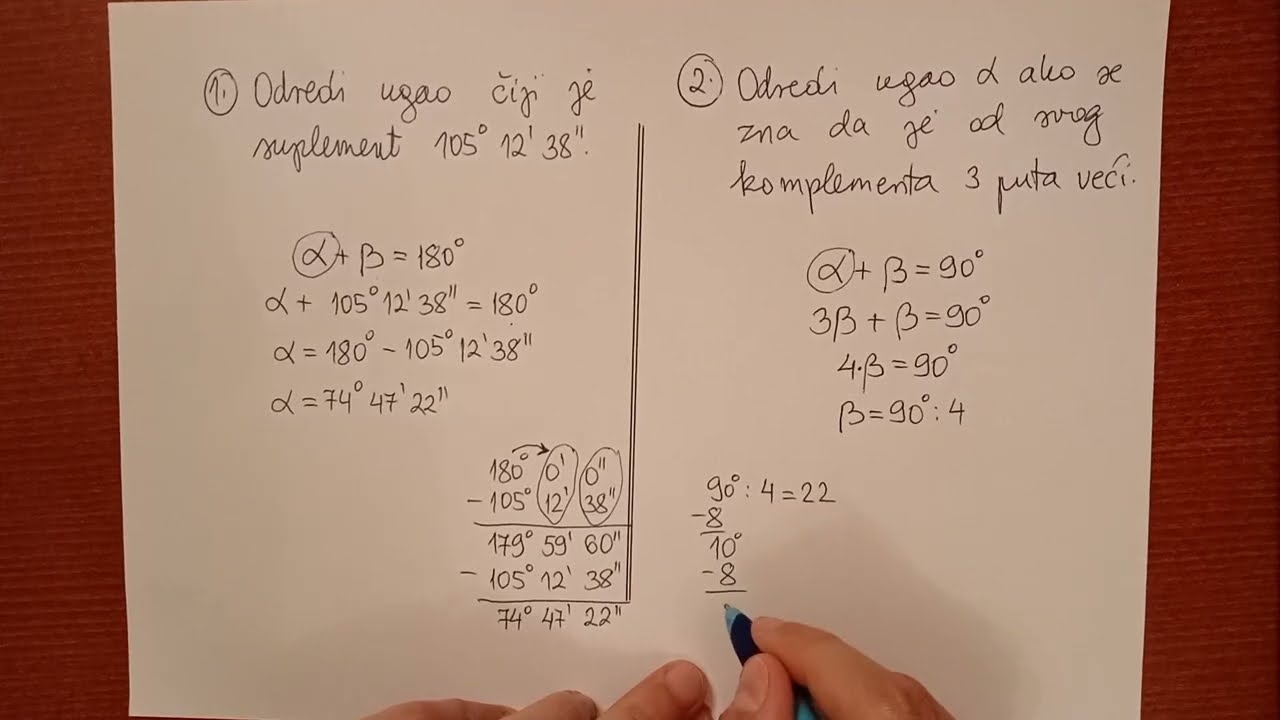 1. Odredi ugao čiji je
suplement 105° 12' 38".
α + β = 180°
α + 105° 12' 38" = 180°
α = 180° - 105° 12' 38"
α = 74° 47' 22"
180° 0' 0"
- 105° 12' 38"
179° 59' 60"
- 105° 12' 38"
74° 47' 22"
2. Odredi ugao α ako se
zna da je od svog
komplementa 3 puta veći.
α + β = 90°
3β + β = 90°
4·β = 90°
β = 90° : 4
90° : 4 = 22
-8
10°
-8